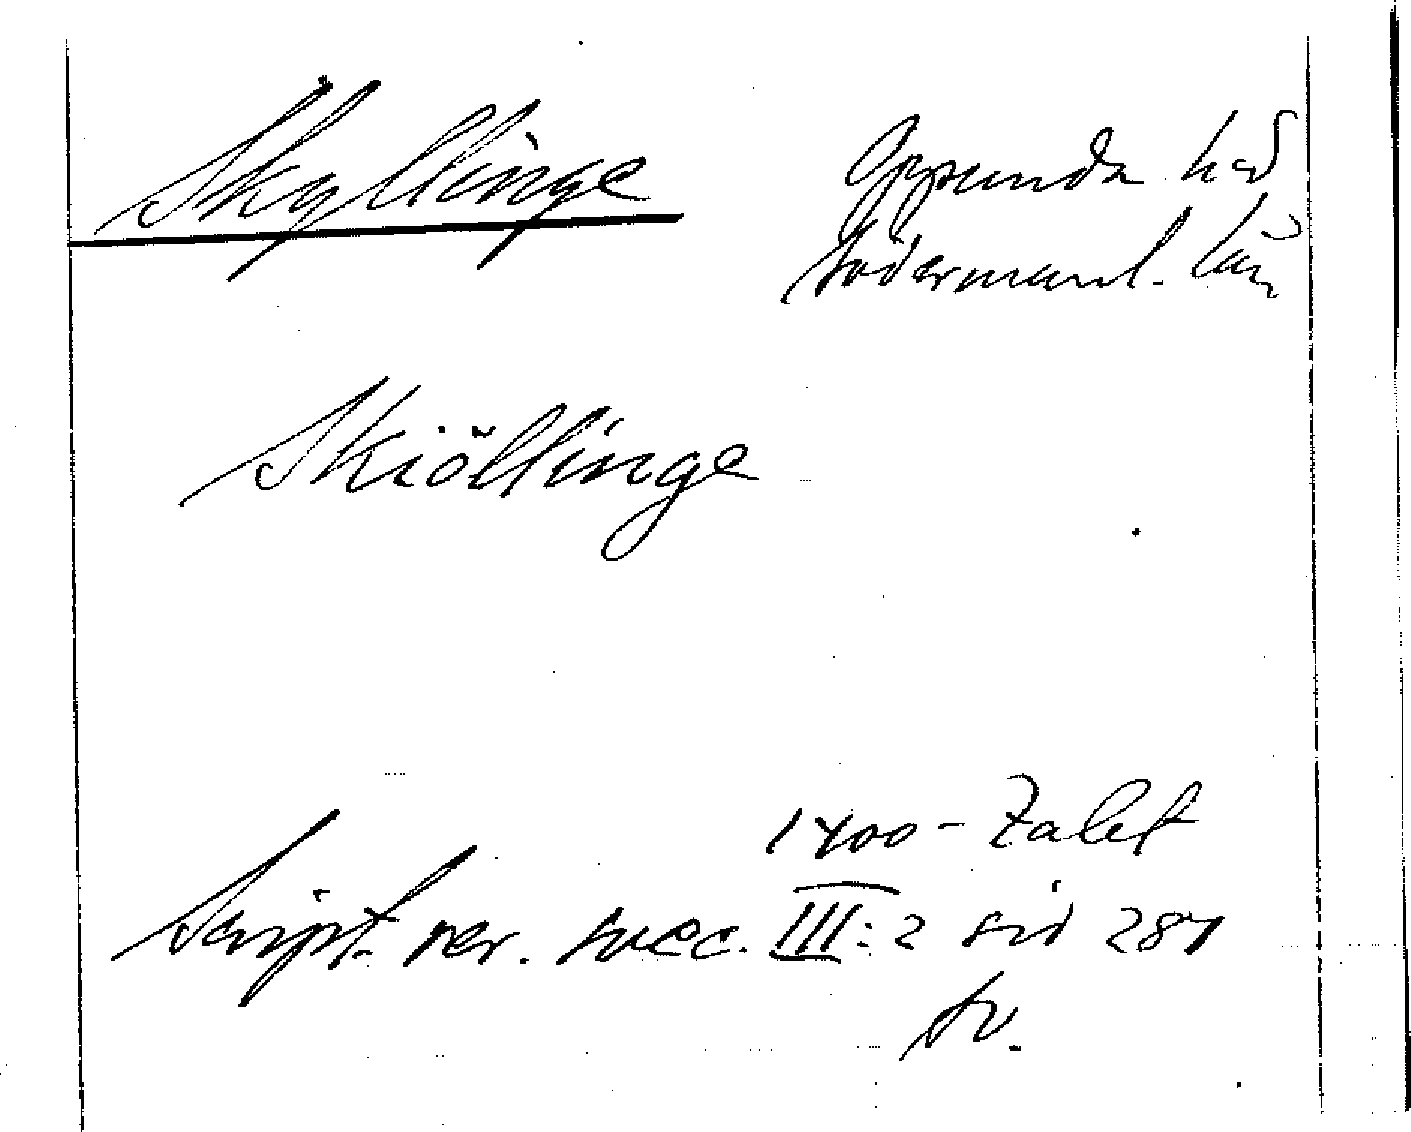 Skyllinge
Oppunda hd
Södermanl. län
Skiöllinge
1400-talet
Script. rer. svec. III:2 sid 287
sv.